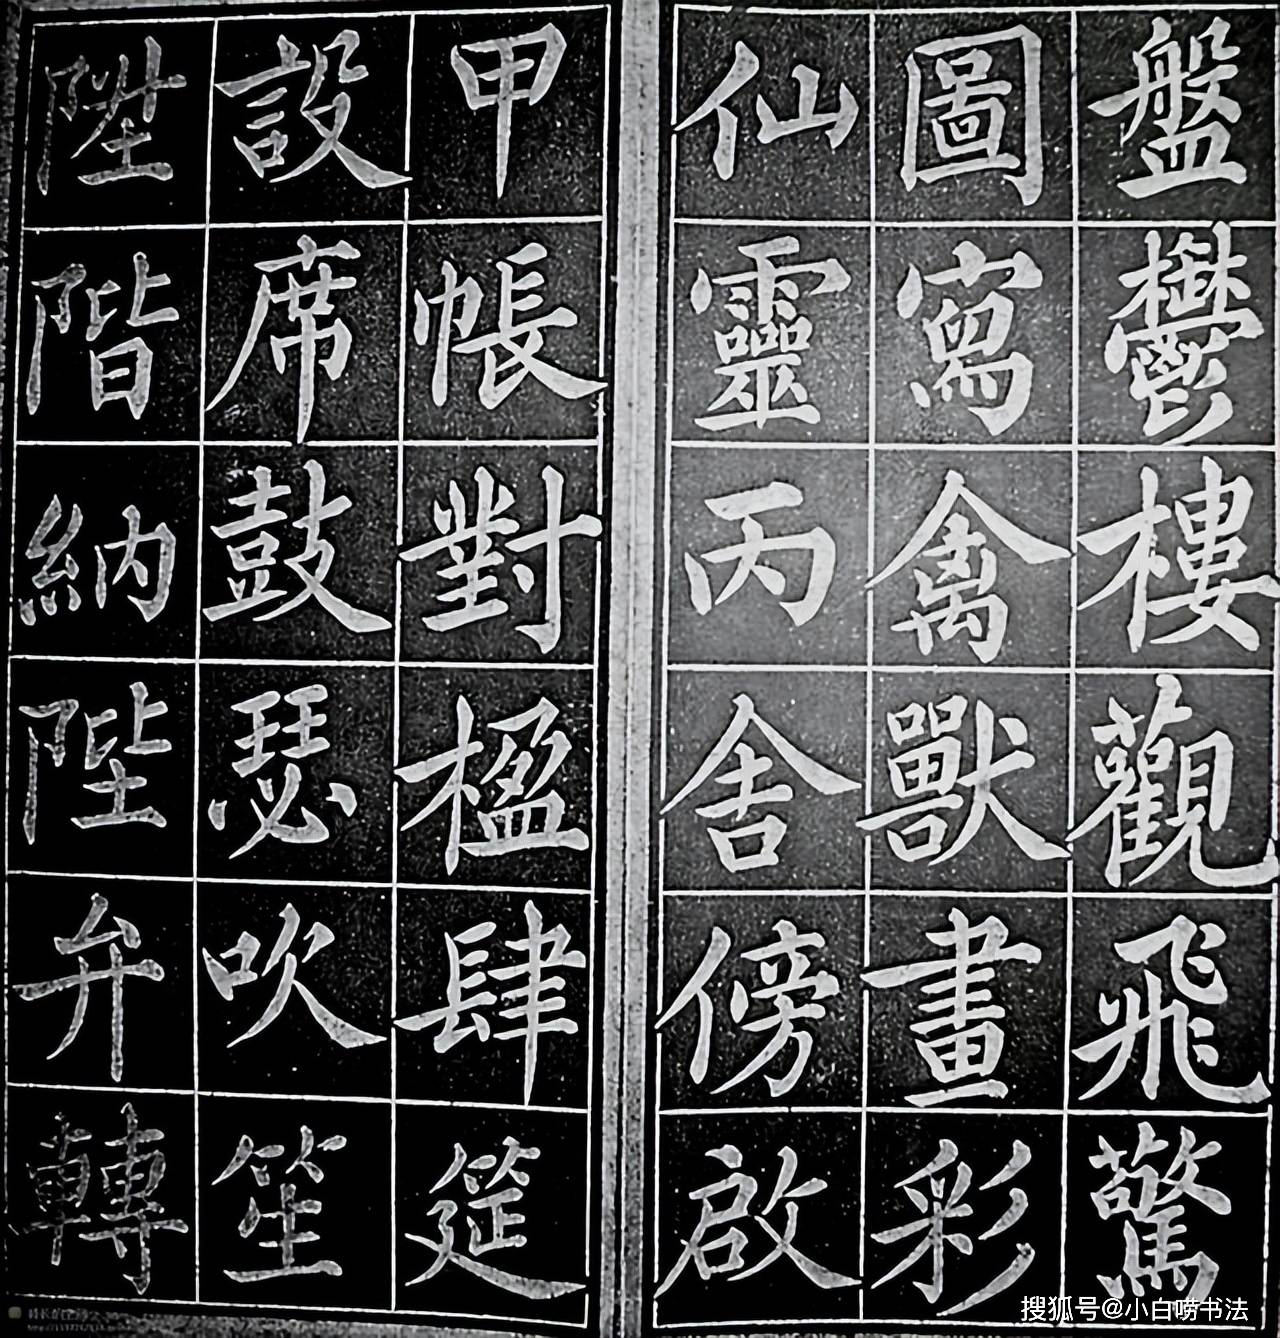 盤鬱樓觀飛驚
圖寫禽獸畫彩
仙靈丙舍傍啟
甲帳對楹肆筵
設席鼓瑟吹笙
陞階納陛弁轉
搜狐号@小白唠书法